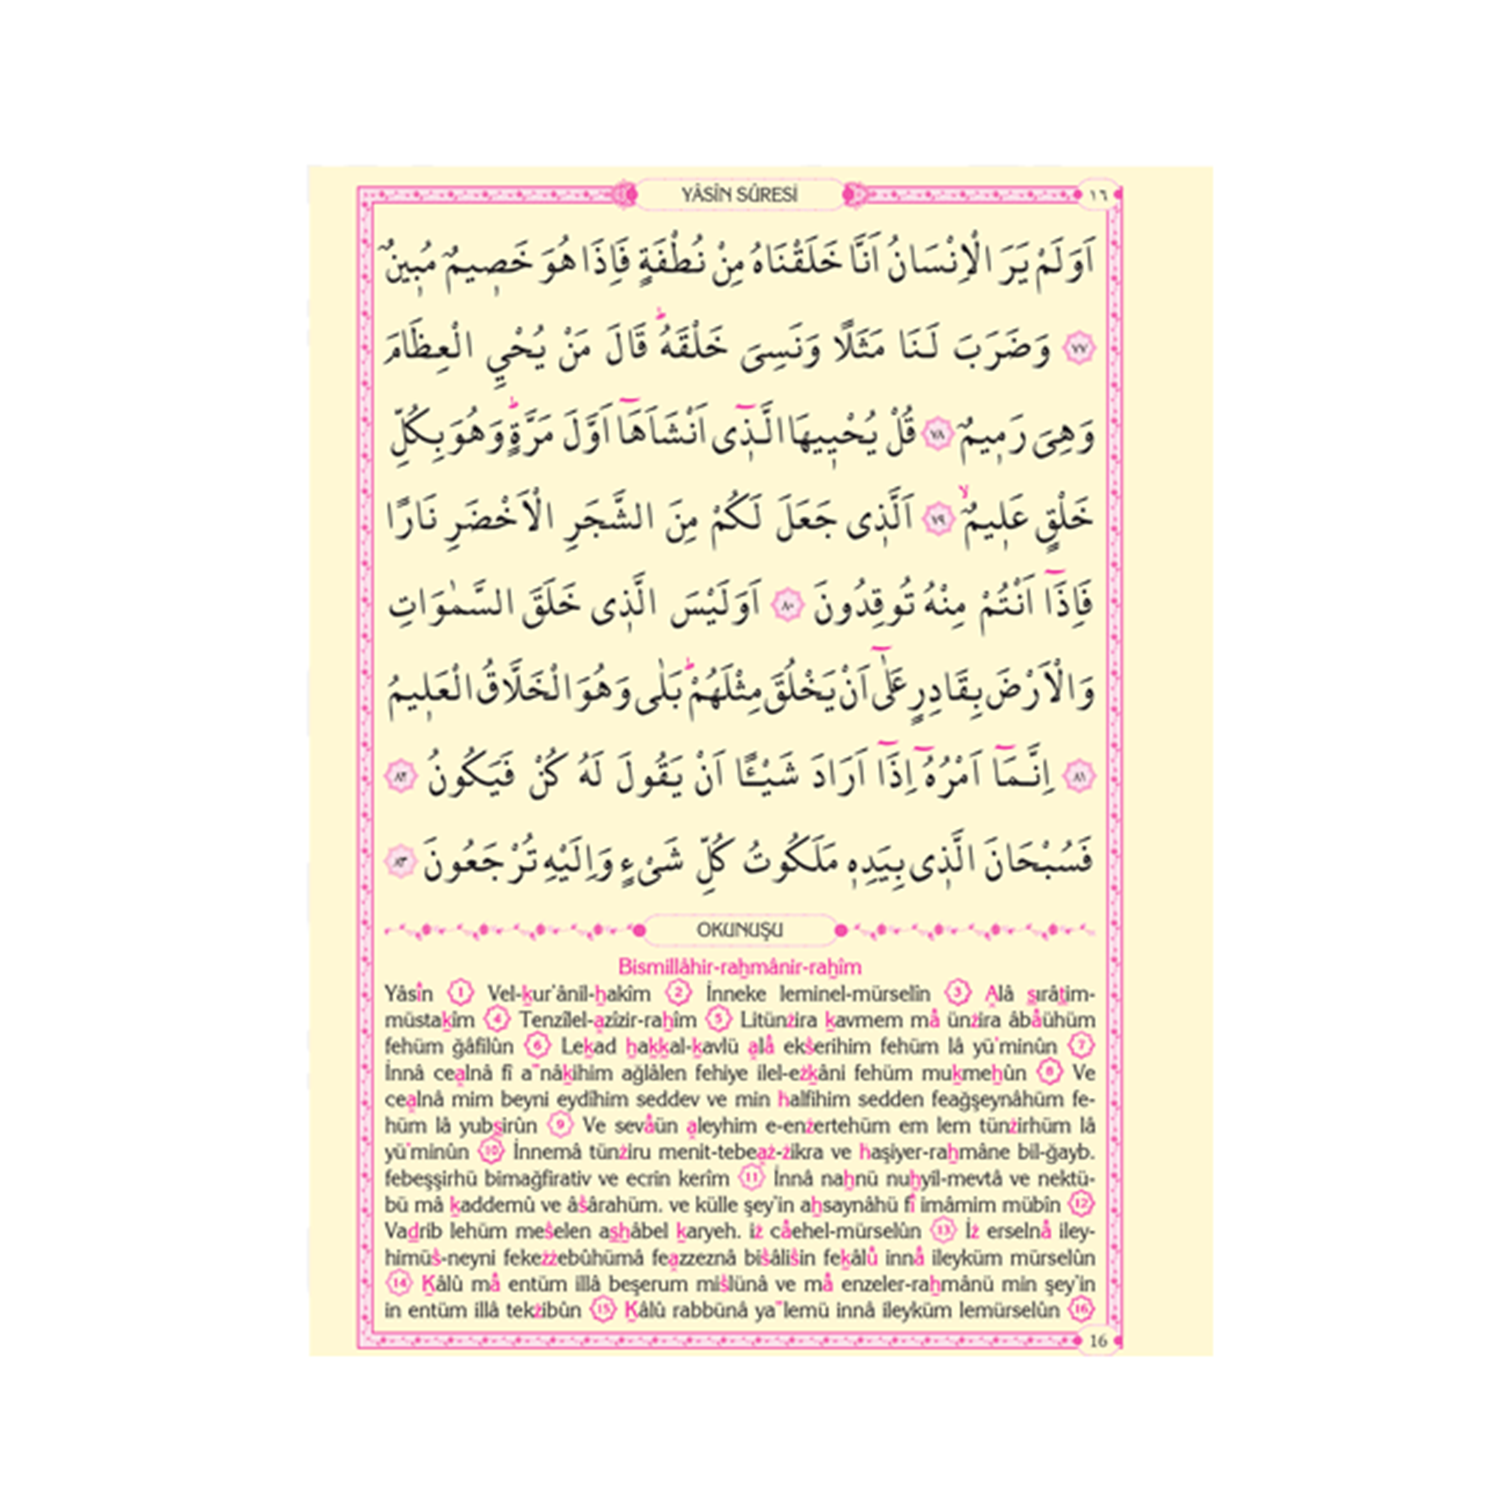 YÂSÎN SÛRESİ
١٦
اَوَلَمْ يَرَ الْاِنْسَانُ اَنَّا خَلَقْنَاهُ مِنْ نُطْفَةٍ فَاِذَا هُوَ خَص۪يمٌ مُب۪ينٌ
﴿٧٧﴾ وَضَرَبَ لَنَا مَثَلًا وَنَسِىَ خَلْقَهُۜ قَالَ مَنْ يُحْيِي الْعِظَامَ
وَهِىَ رَم۪يمٌ ﴿٧٨﴾ قُلْ يُحْي۪يهَا الَّذ۪ٓى اَنْشَاَهَٓا اَوَّلَ مَرَّةٍۜ وَهُوَ بِكُلِّ
خَلْقٍ عَل۪يمٌۙ ﴿٧٩﴾ اَلَّذ۪ى جَعَلَ لَكُمْ مِنَ الشَّجَرِ الْاَخْضَرِ نَارًا
فَاِذَٓا اَنْتُمْ مِنْهُ تُوقِدُونَ ﴿٨٠﴾ اَوَلَيْسَ الَّذ۪ى خَلَقَ السَّمٰوَاتِ
وَالْاَرْضَ بِقَادِرٍ عَلٰٓى اَنْ يَخْلُقَ مِثْلَهُمْۜ بَلٰى وَهُوَ الْخَلَّاقُ الْعَل۪يمُ
﴿٨١﴾ اِنَّمَٓا اَمْرُهُٓ اِذَٓا اَرَادَ شَيْـًٔا اَنْ يَقُولَ لَهُ كُنْ فَيَكُونُ ﴿٨٢﴾
فَسُبْحَانَ الَّذ۪ى بِيَدِه۪ مَلَكُوتُ كُلِّ شَىْءٍ وَاِلَيْهِ تُرْجَعُونَ ﴿٨٣﴾
OKUNUŞU
Bismillâhir-raḥmânir-raḥîm
Yâsîn 1 Vel-ḳur'ânil-ḥakîm 2 İnneke leminel-mürselîn 3 Alâ ṣırâṭim-
müstaḳîm 4 Tenzîlel-azîzir-raḥîm 5 Litünżira ḳavmem mâ ünżira âbâühüm
fehüm ğâfilûn 6 Leḳad ḥaḳḳal-ḳavlü alâ ekṡerihim fehüm lâ yü'minûn 7
İnnâ cealnâ fî a'nâḳihim ağlâlen fehiye ilel-eżḳâni fehüm muḳmeḥûn 8 Ve
cealnâ mim beyni eydîhim seddev ve min ḣalfihim sedden feağşeynâhüm fe-
hüm lâ yubṣirûn 9 Ve sevâün aleyhim e-enżertehüm em lem tünżirhüm lâ
yü'minûn 10 İnnemâ tünżiru menit-tebeaż-żikra ve ḣaşiyer-raḥmâne bil-ğayb.
febeşşirhü bimağfirativ ve ecrin kerîm 11 İnnâ naḥnü nuḥyil-mevtâ ve nektü-
bü mâ ḳaddemû ve âṡârahüm. ve külle şey'in aḥsaynâhü fî imâmim mübîn 12
Vaḍrib lehüm meṡelen aṣḥâbel ḳaryeh. iż câehel-mürselûn 13 İż erselnâ iley-
himüṡ-neyni fekeżżebûhümâ feazzeznâ biṡâliṡin feḳâlû innâ ileyküm mürselûn
14 Ḳâlû mâ entüm illâ beşerum miṡlünâ ve mâ enzeler-raḥmânü min şey'in
in entüm illâ tekżibûn 15 Ḳâlû rabbünâ ya'lemü innâ ileyküm lemürselûn 16
16